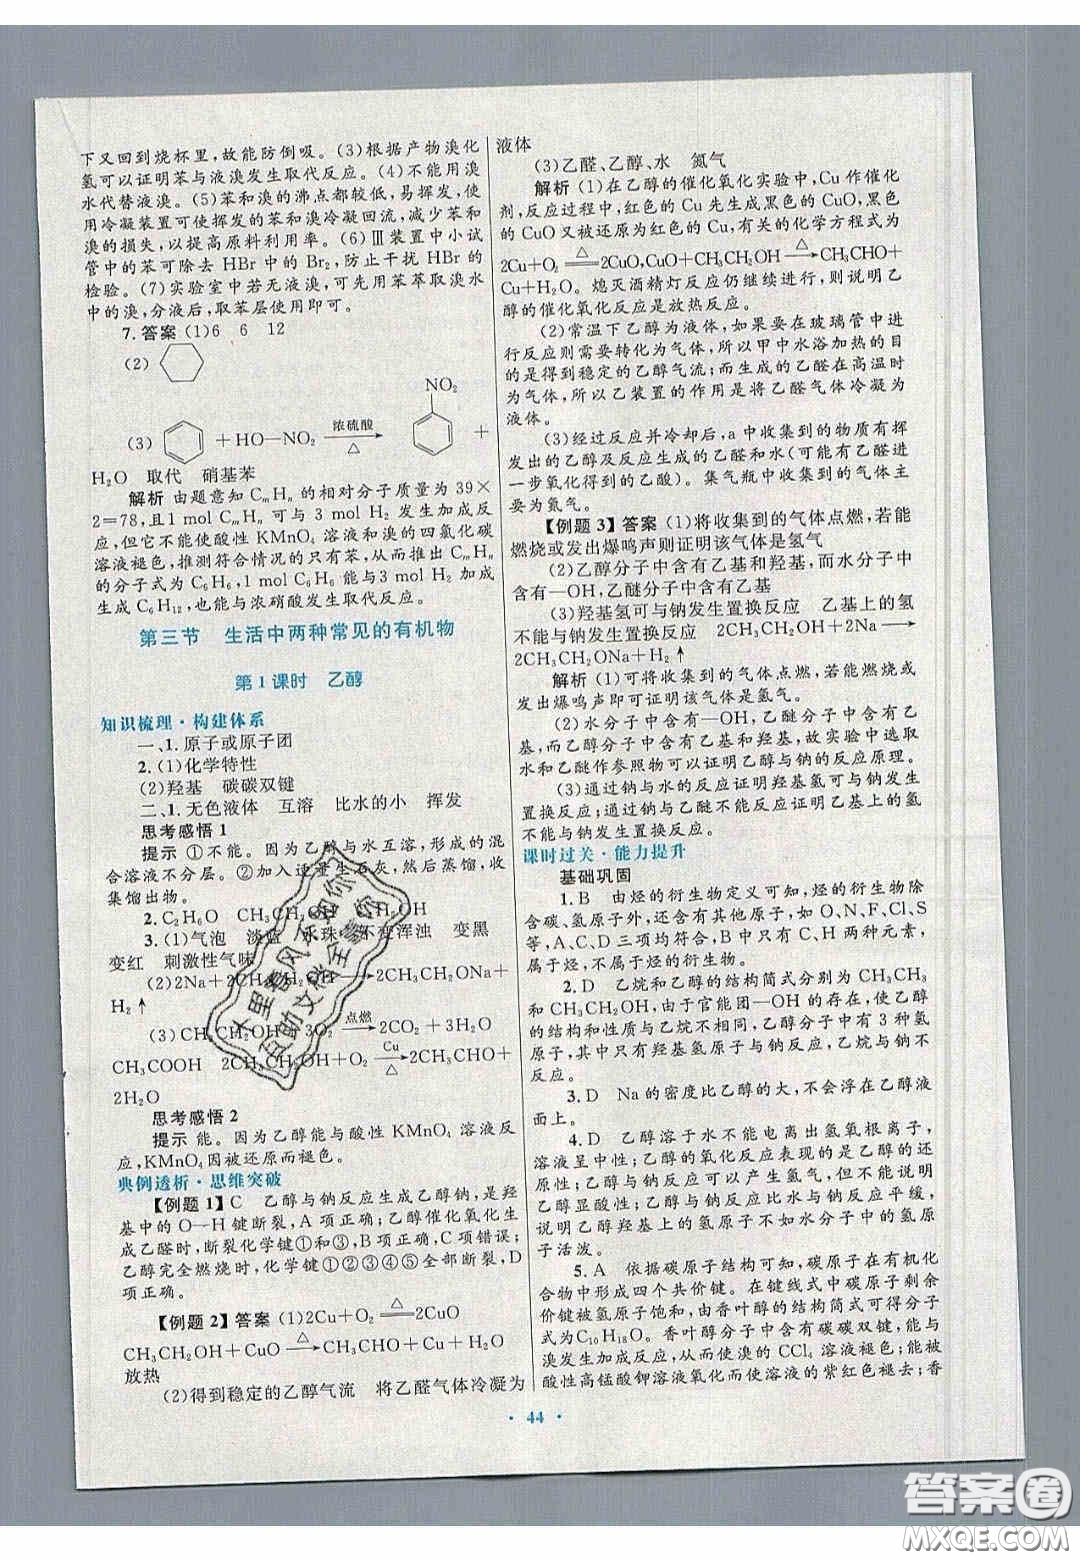 下又回到烧杯里，故能防倒吸。(3)根据产物溴化
氢可以证明苯与液溴发生取代反应。(4)不能用溴
水代替液溴。(5)苯和溴的沸点都较低，易挥发，使
用冷凝装置可使挥发的苯和溴冷凝回流，减少苯和
溴的损失，以提高原料利用率。(6)Ⅲ装置中小试
管中的苯可除去 HBr 中的 Br₂，防止干扰 HBr 的
检验。(7)实验室中若无液溴，可先用苯萃取溴水
中的溴，分液后，取苯层使用即可。
7. 答案 (1)6 6 12
(2)
NO₂
(3) +HO—NO₂ 浓硫酸 △ +
H₂O 取代 硝基苯
解析 由题意知 CₘHₙ 的相对分子质量为 39×
2=78，且 1 mol CₘHₙ 可与 3 mol H₂ 发生加成反
应，但它不能使酸性 KMnO₄ 溶液和溴的四氯化碳
溶液褪色，推测符合情况的只有苯，从而推出 CₘHₙ
的分子式为 C₆H₆，1 mol C₆H₆ 能与 3 mol H₂ 加成
生成 C₆H₁₂，也能与浓硝酸发生取代反应。
第三节 生活中两种常见的有机物
第 1 课时 乙醇
知识梳理·构建体系
一、1. 原子或原子团
2. (1)化学特性
(2)羟基 碳碳双键
二、1. 无色液体 互溶 比水的小 挥发
思考感悟 1
提示 ①不能。因为乙醇与水互溶，形成的混
合液不分层。②加入适量生石灰，然后蒸馏，收
集馏出物。
2. C₂H₆O CH₃CH₂OH
3. (1)气泡 淡蓝 水珠 不变浑浊 变黑
变红 刺激性气味
(2)2Na+2CH₃CH₂OH→2CH₃CH₂ONa+
H₂↑
(3)CH₃CH₂OH+3O₂ 点燃→2CO₂+3H₂O
CH₃COOH 2CH₃CH₂OH+O₂ Cu △→2CH₃CHO+
2H₂O
思考感悟 2
提示 能。因为乙醇能与酸性 KMnO₄ 溶液反
应，KMnO₄ 因被还原而褪色。
典例透析·思维突破
【例题 1】C 乙醇与钠反应生成乙醇钠，是羟
基中的 O—H 键断裂，A 项正确；乙醇催化氧化生
成乙醛时，断裂化学键①和③，B 项正确，C 项错误；
乙醇完全燃烧时，化学键①②③④⑤全部断裂，D
项正确。
【例题 2】答案 (1)2Cu+O₂ △ 2CuO
CH₃CH₂OH+CuO △→CH₃CHO+Cu+H₂O
放热
(2)得到稳定的乙醇气流 将乙醛气体冷凝为
液体
(3)乙醛、乙醇、水 氮气
解析 (1)在乙醇的催化氧化实验中，Cu 作催化
剂，反应过程中，红色的 Cu 先生成黑色的 CuO，黑色
的 CuO 又被还原为红色的 Cu，有关的化学方程式为
2Cu+O₂ △ 2CuO，CuO+CH₃CH₂OH △→CH₃CHO+
Cu+H₂O。熄灭酒精灯反应仍继续进行，说明乙
醇的催化氧化反应是放热反应。
(2)常温下乙醇为液体，如果要在玻璃管中进
行反应则需要转化为气体，所以甲中水浴加热的目
的是得到稳定的乙醇气流；而生成的乙醛在高温时
为气体，所以乙装置的作用是将乙醛气体冷凝为
液体。
(3)经过反应并冷却后，a 中收集到的物质有挥
发出的乙醇及反应生成的乙醛和水(可能有乙醛进
一步氧化得到的乙酸)。集气瓶中收集到的气体主
要为氮气。
【例题 3】答案 (1)将收集到的气体点燃，若能
燃烧或发出爆鸣声则证明该气体是氢气
(2)乙醇分子中含有乙基和羟基，而水分子中
含有—OH，乙醚分子中含有乙基
(3)羟基氢可与钠发生置换反应 乙基上的氢
不能与钠发生置换反应 2CH₃CH₂OH+2Na→
2CH₃CH₂ONa+H₂↑
解析 (1)可将收集到的气体点燃，若能燃烧或
发出爆鸣声即可证明该气体是氢气。
(2)水分子中含有—OH，乙醚分子中含有乙
基，而乙醇分子中含有乙基和羟基，故实验中选取
水和乙醚作参照物可以证明乙醇与钠的反应原理。
(3)通过钠与水的反应证明羟基氢可与钠发生
置换反应；通过钠与乙醚不能反应证明乙基上的氢
不能与钠发生置换反应。
课时过关·能力提升
基础巩固
1. B 由烃的衍生物定义可知，烃的衍生物除
含碳、氢原子外，还含有其他原子，如 O、N、F、Cl、S
等，A、C、D 三项均符合，B 中只有 C、H 两种元素，
属于烃，不属于烃的衍生物。
2. D 乙烷和乙醇的结构简式分别为 CH₃CH₃
和 CH₃CH₂OH，由于官能团—OH 的存在，使乙醇
的结构和性质与乙烷不相同，乙醇分子中有 3 种氢
原子，其中只有羟基氢原子与钠反应，乙烷与钠不
反应。
3. D Na 的密度比乙醇的大，不会浮在乙醇液
面上。
4. D 乙醇溶于水不能电离出氢氧根离子，
溶液呈中性；乙醇的氧化反应表现的是乙醇的还
原性；乙醇与钠反应产生氢气，乙醇表现的不是
显酸性；乙醇与钠反应比水与钠反应平缓，
说明乙醇羟基上的氢原子不如水分子中的氢原
子活泼。
5. A 依据碳原子结构可知，碳原子在有机化
合物中形成四个共价键。在键线式中碳原子剩余
价键被氢原子饱和，由香叶醇的结构简式可得分子
式为 C₁₀H₁₈O。香叶醇分子中含有碳碳双键，能与
溴发生加成反应，从而使溴的 CCl₄ 溶液褪色；能被
酸性高锰酸钾溶液氧化而使溶液的紫红色褪去；香
· 44 ·
答案圈
MXQE.COM